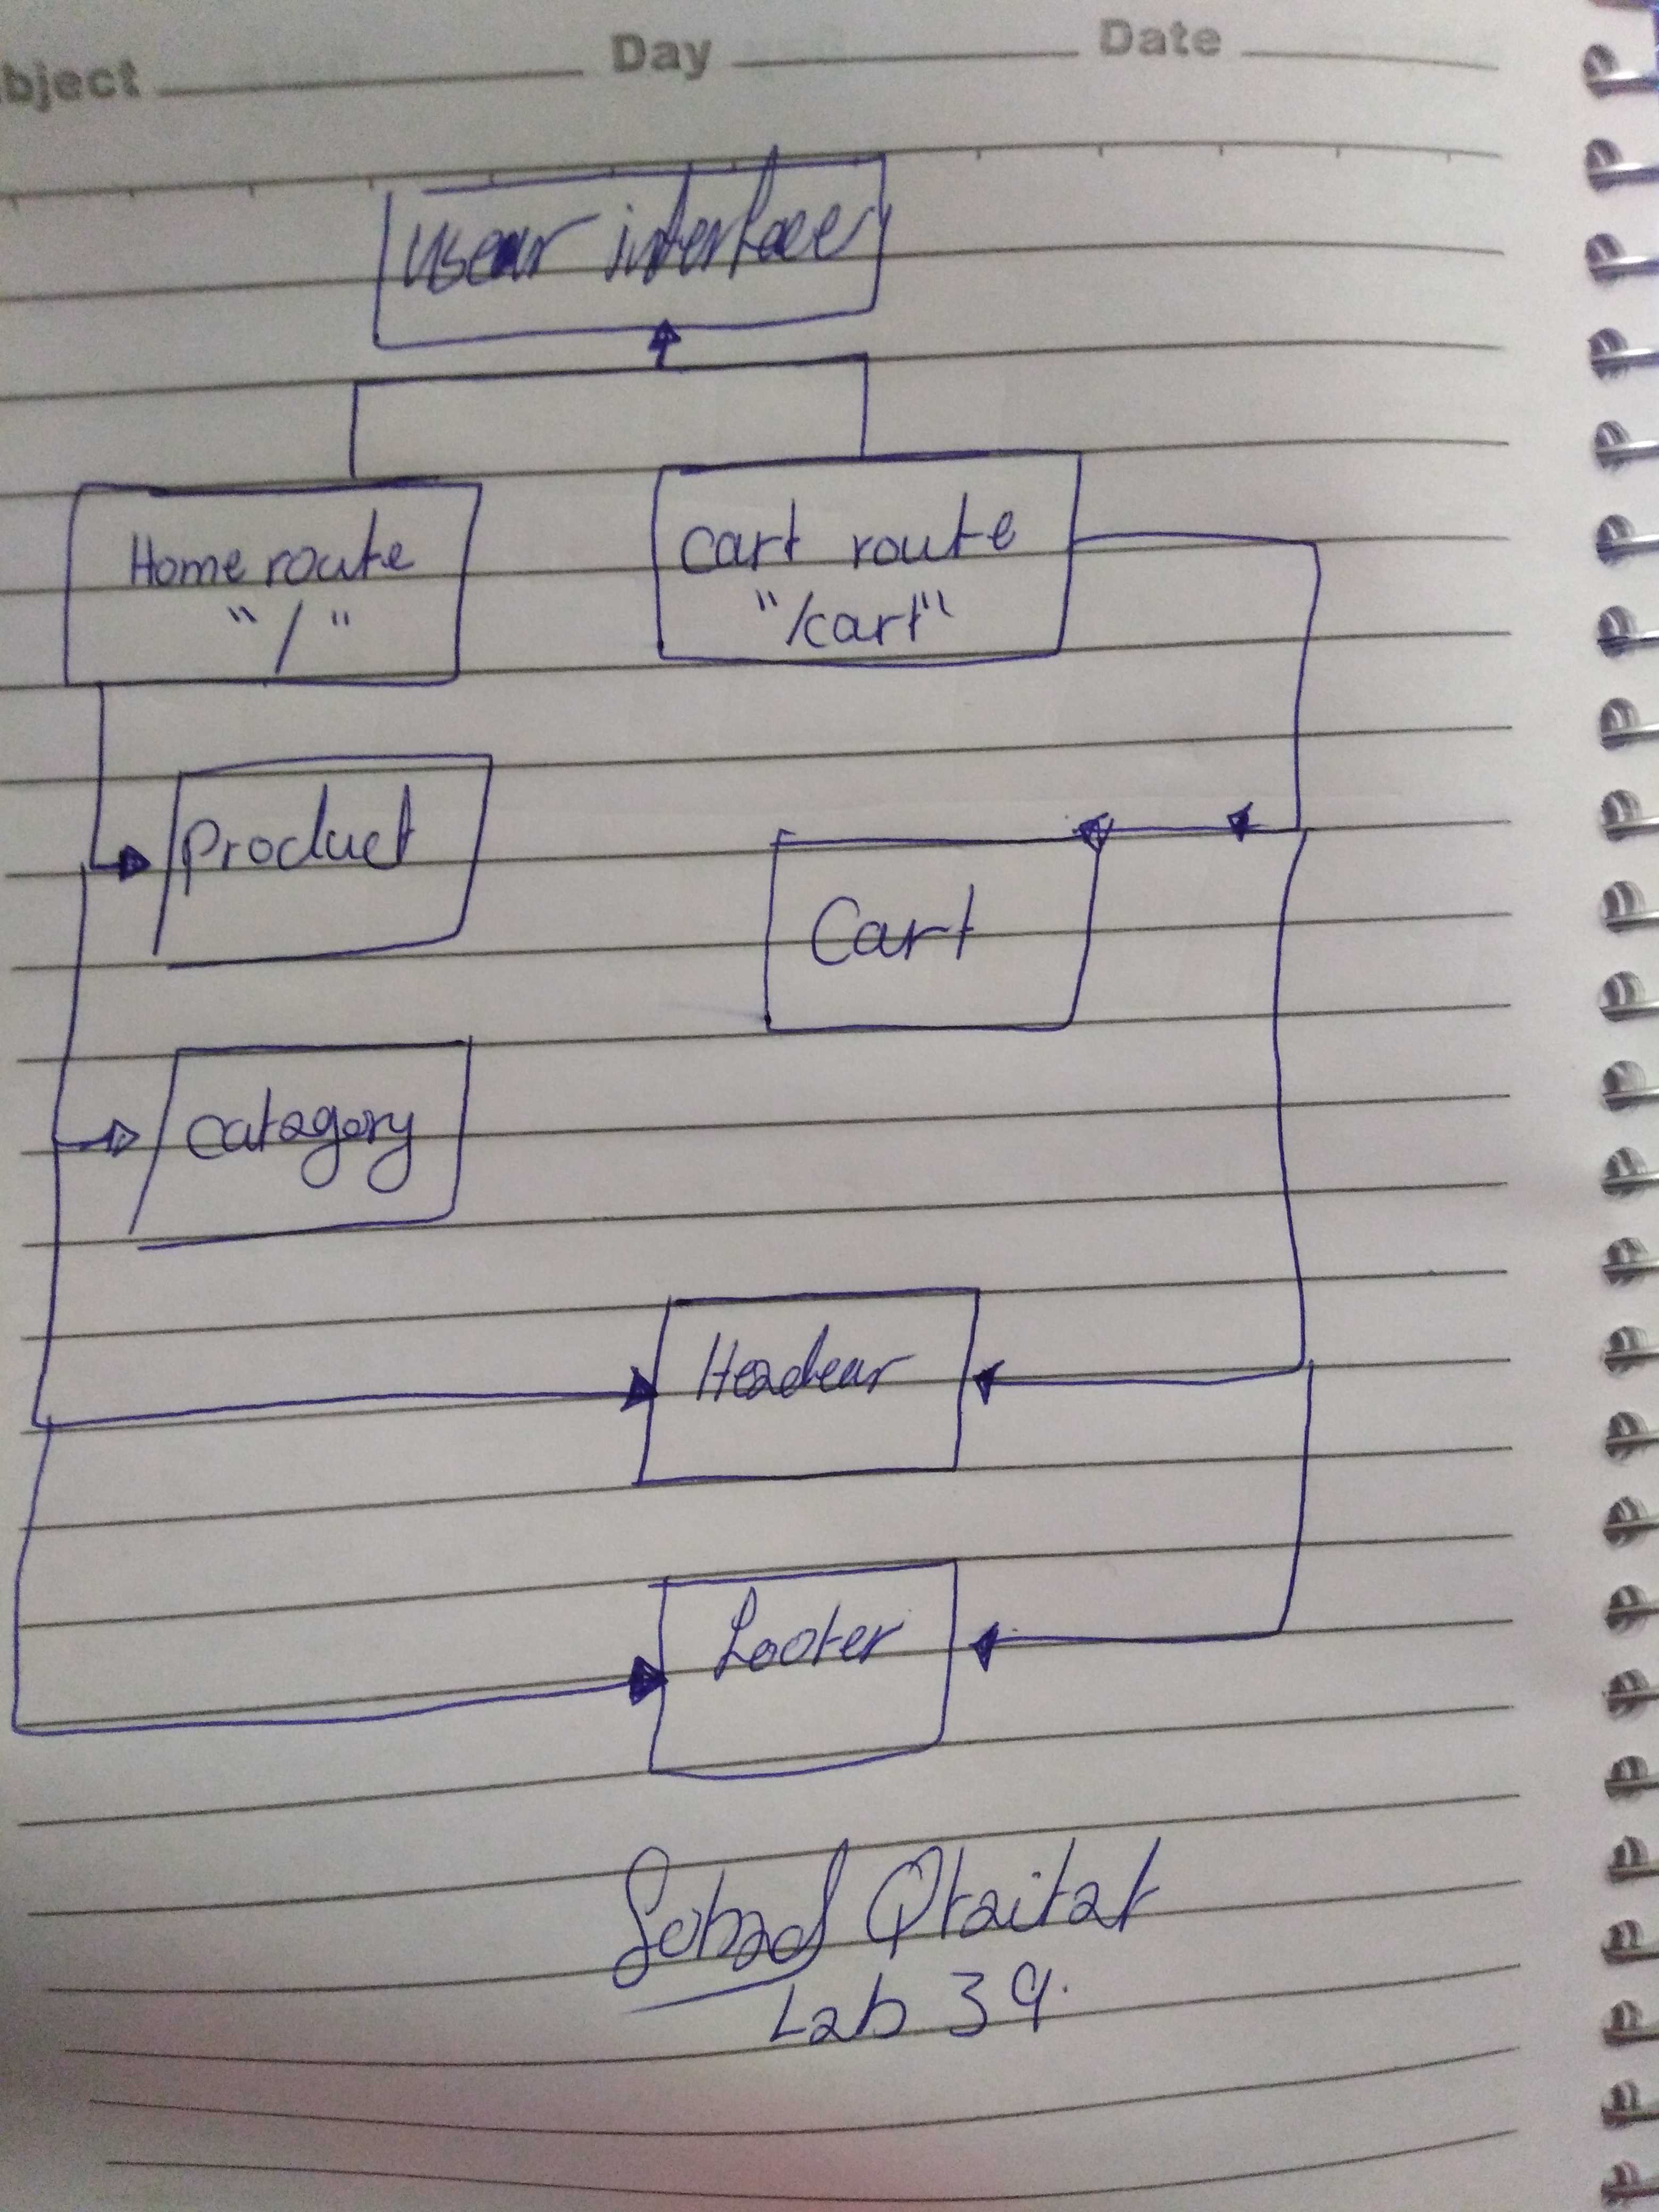 bject Day Date
user interface
Home route
"/"
cart route
"/cart"
product
Cart
catagory
Headear
footer
Qtaitat
Lab 39.